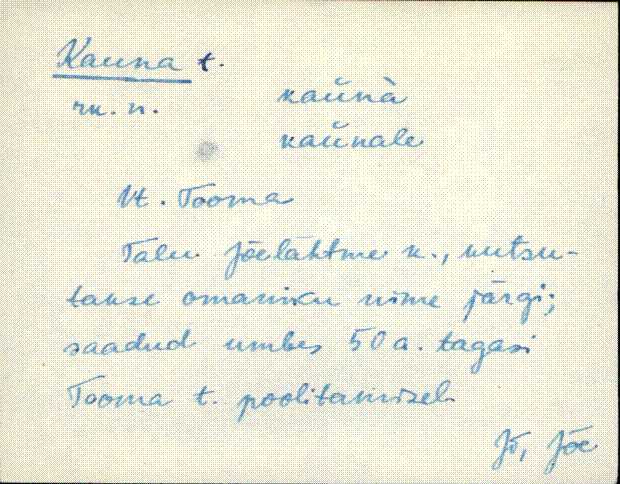 Kauna t.
rk. n. kaŭnà
kaŭnale
Vt. Tooma
Talu Jõelähtme k., kutsu-
takse omaniku nime järgi;
saadud umbes 50 a. tagasi
Tooma t. poolitamisel.
Jõ, Jõe